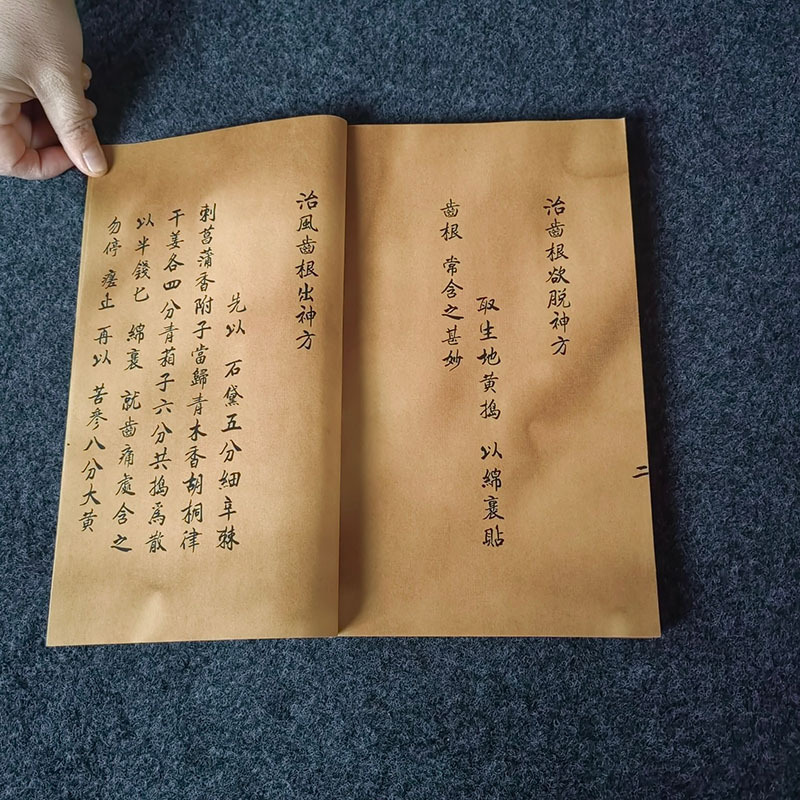 治齒根欲脫神方
取生地黄搗 以綿裹貼
齒根 常含之甚妙
二
治風齒根出神方
先以 石黛五分細辛棘
刺菖蒲香附子當歸青木香胡桐律
干姜各四分青葙子六分共搗爲散
以半錢匕 綿裹 就齒痛處含之
勿停 瘥止 再以 苦參八分大黄